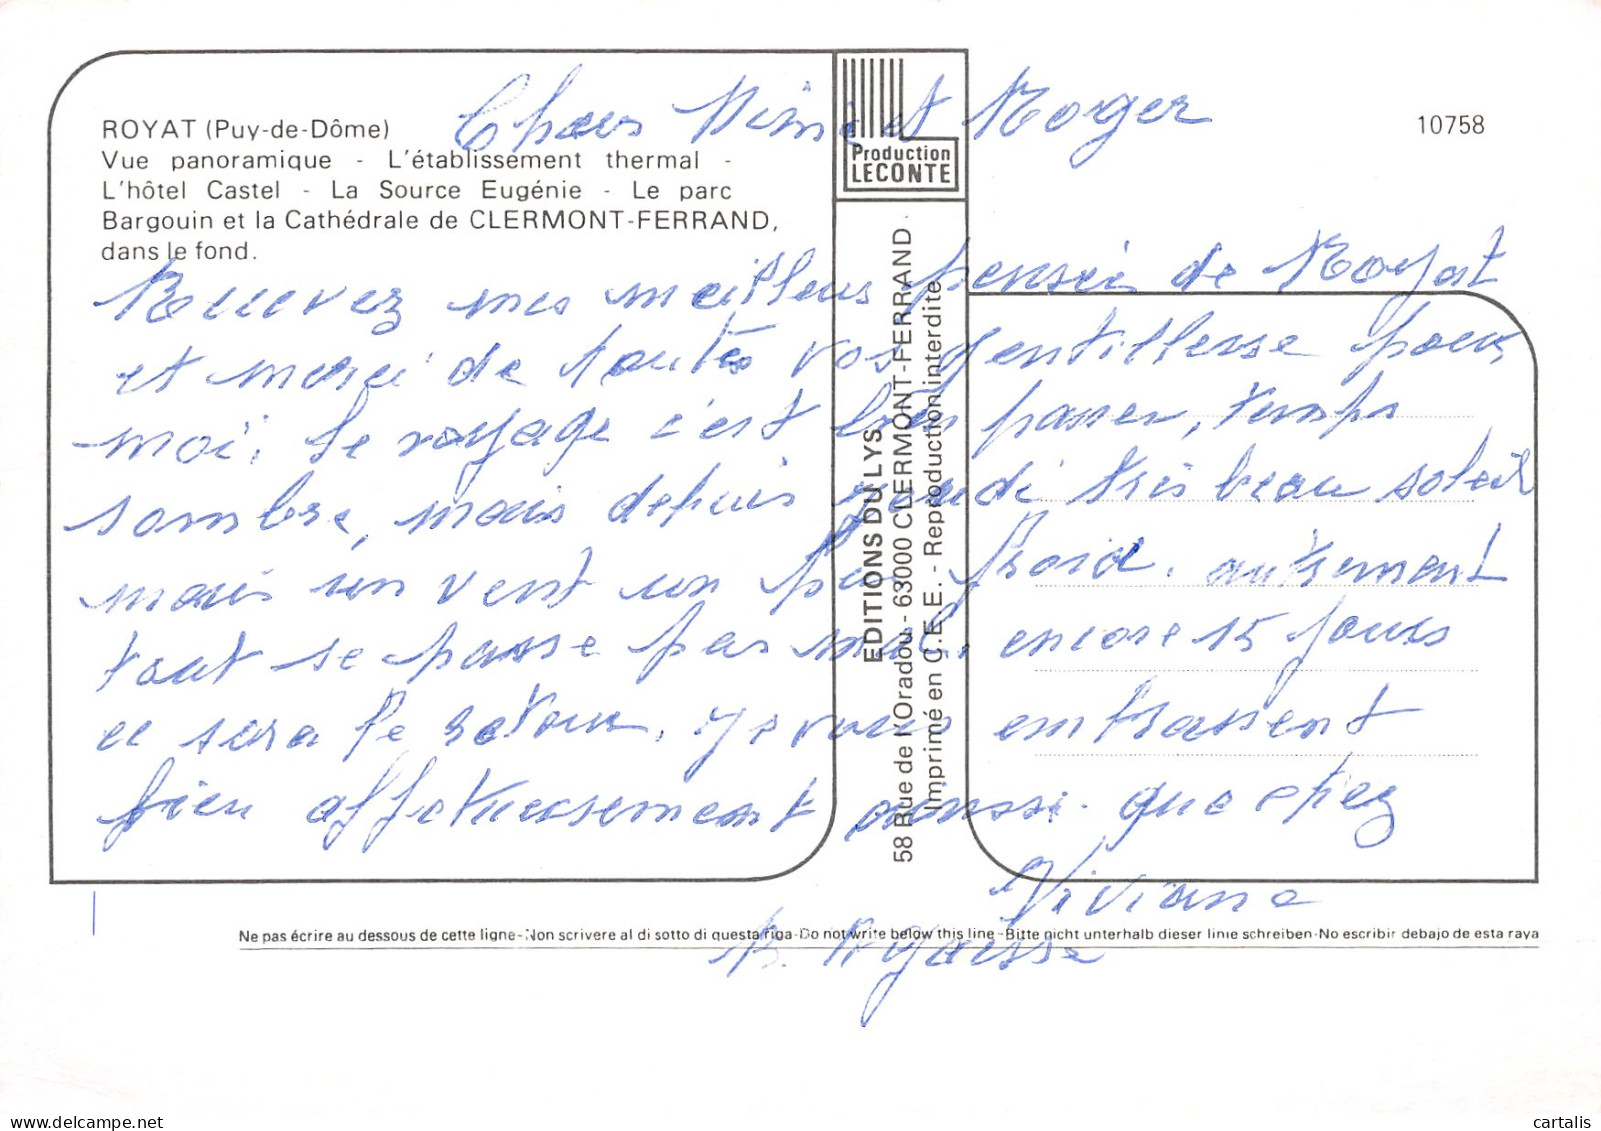 ROYAT (Puy-de-Dôme)
Vue panoramique - L'établissement thermal -
L'hôtel Castel - La Source Eugénie - Le parc
Bargouin et la Cathédrale de CLERMONT-FERRAND,
dans le fond.
Production
LECONTE
10758
EDITIONS DU LYS
58 Rue de l'Oradou - 63000 CLERMONT-FERRAND.
Imprimé en C.E.E. - Reproduction interdite
Chers Mimi et Roger
Recevez mes meilleurs pensées de Royat
et merci de toutes vos gentillesse pour
moi. le voyage c'est bien passer, temps
sombre, mais depuis jeudi très beau soleil
mais un vent un peu froid. autrement
tout se passe pas mal, encore 15 jours
ce sera le retour, je vous embrassent
bien affectueusement aussi que chez
Viviane
Ne pas écrire au dessous de cette ligne-Non scrivere al di sotto di questa riga-Do not write below this line-Bitte nicht unterhalb dieser linie schreiben-No escribir debajo de esta raya
cartalis